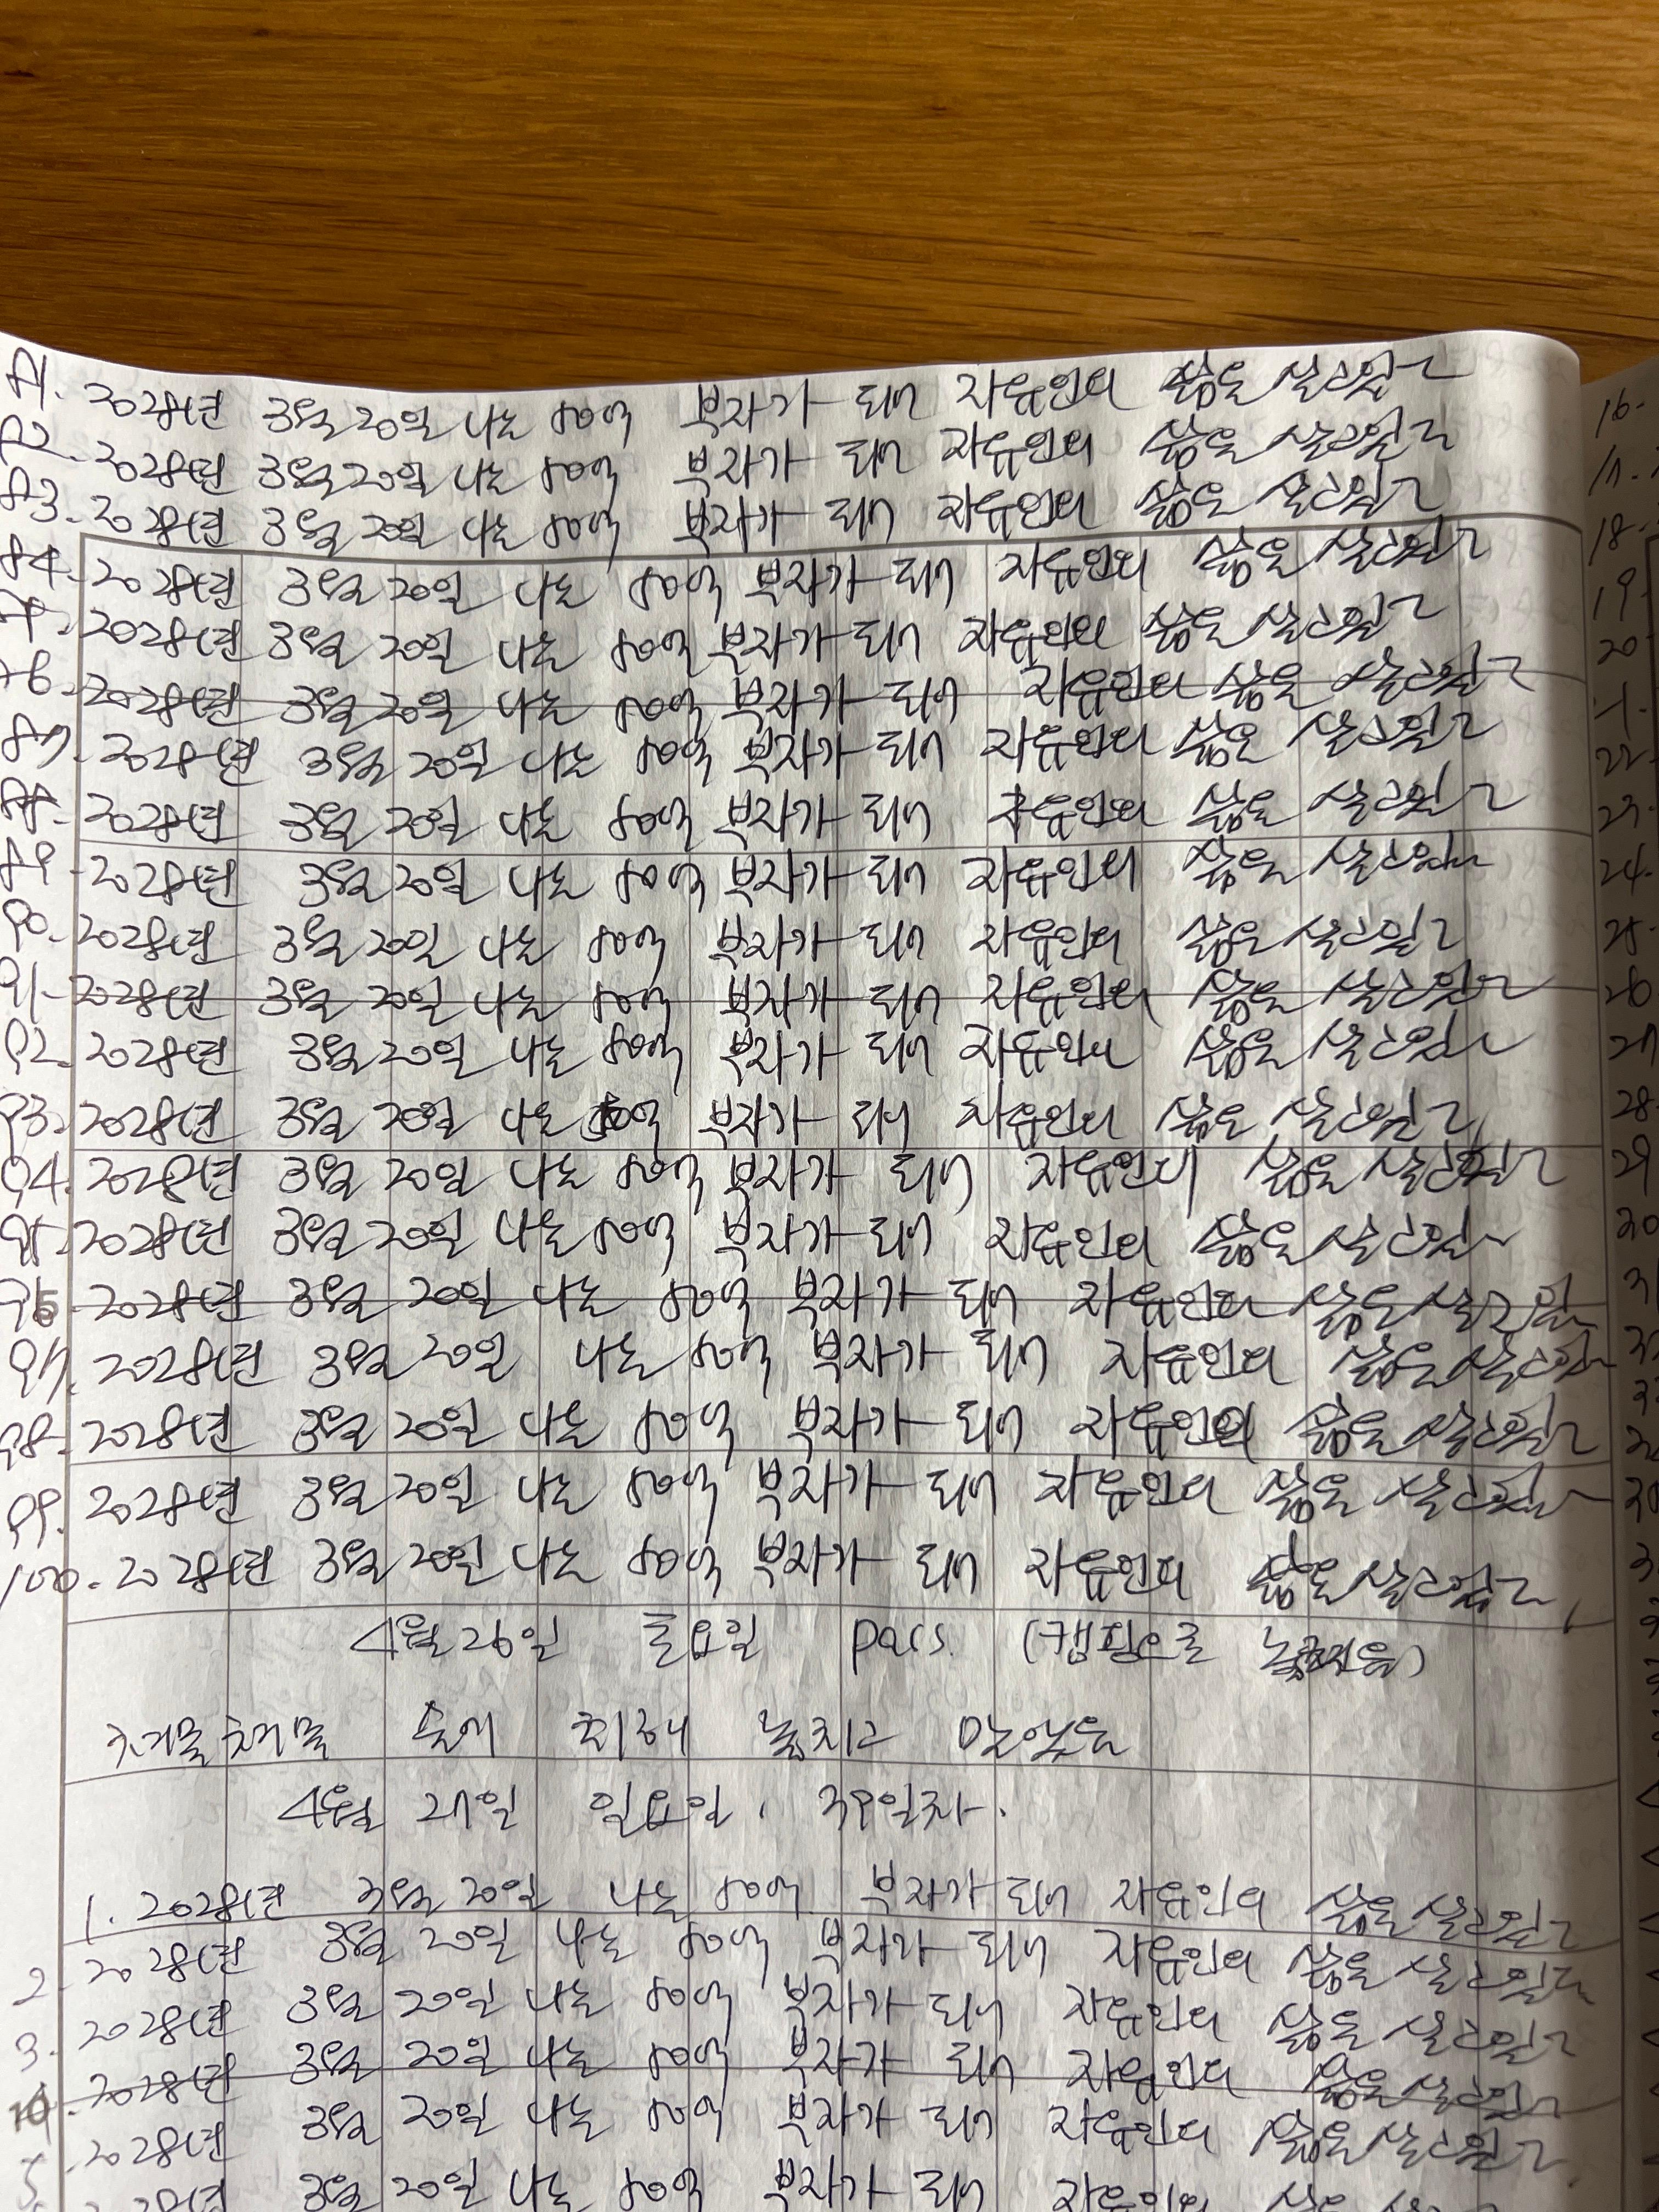 81. 2028년 3월 20일 나는 80억 부자가 되어 자유인의 삶을 살고있다
82. 2028년 3월 20일 나는 80억 부자가 되어 자유인의 삶을 살고있다
83. 2028년 3월 20일 나는 80억 부자가 되어 자유인의 삶을 살고있다
84. 2028년 3월 20일 나는 80억 부자가 되어 자유인의 삶을 살고있다
2028년 3월 20일 나는 80억 부자가 되어 자유인의 삶을 살고있다
2028년 3월 20일 나는 80억 부자가 되어 자유인의 삶을 살고있다
87. 2028년 3월 20일 나는 80억 부자가 되어 자유인의 삶을 살고있다
88. 2028년 3월 20일 나는 80억 부자가 되어 자유인의 삶을 살고있다
89. 2028년 3월 20일 나는 80억 부자가 되어 자유인의 삶을 살고있다
90. 2028년 3월 20일 나는 80억 부자가 되어 자유인의 삶을 살고있다
91. 2028년 3월 20일 나는 80억 부자가 되어 자유인의 삶을 살고있다
92. 2028년 3월 20일 나는 80억 부자가 되어 자유인의 삶을 살고있다
93. 2028년 3월 20일 나는 80억 부자가 되어 자유인의 삶을 살고있다
94. 2028년 3월 20일 나는 80억 부자가 되어 자유인의 삶을 살고있다
95. 2028년 3월 20일 나는 80억 부자가 되어 자유인의 삶을 살고있다
96. 2028년 3월 20일 나는 80억 부자가 되어 자유인의 삶을 살고있다
97. 2028년 3월 20일 나는 80억 부자가 되어 자유인의 삶을 살고있다
98. 2028년 3월 20일 나는 80억 부자가 되어 자유인의 삶을 살고있다
99. 2028년 3월 20일 나는 80억 부자가 되어 자유인의 삶을 살고있다
100. 2028년 3월 20일 나는 80억 부자가 되어 자유인의 삶을 살고있다
4월 26일 토요일 pass (캠핑으로 놓쳐버림)
술에 취해 놓치고 말았음
4월 27일 일요일, 39일차.
1. 2028년 3월 20일 나는 80억 부자가 되어 자유인의 삶을 살고있다
2. 2028년 3월 20일 나는 80억 부자가 되어 자유인의 삶을 살고있다
3. 2028년 3월 20일 나는 80억 부자가 되어 자유인의 삶을 살고있다
2028년 3월 20일 나는 80억 부자가 되어 자유인의 삶을 살고있다
5. 2028년 3월 20일 나는 80억 부자가 되어 자유인의 삶을 살고있다
2028년 3월 20일 나는 80억 부자가 되어 자유인의
16.
17.
18.
19.
20
22
23.
24.
25.
26
27
28.
29
30
31